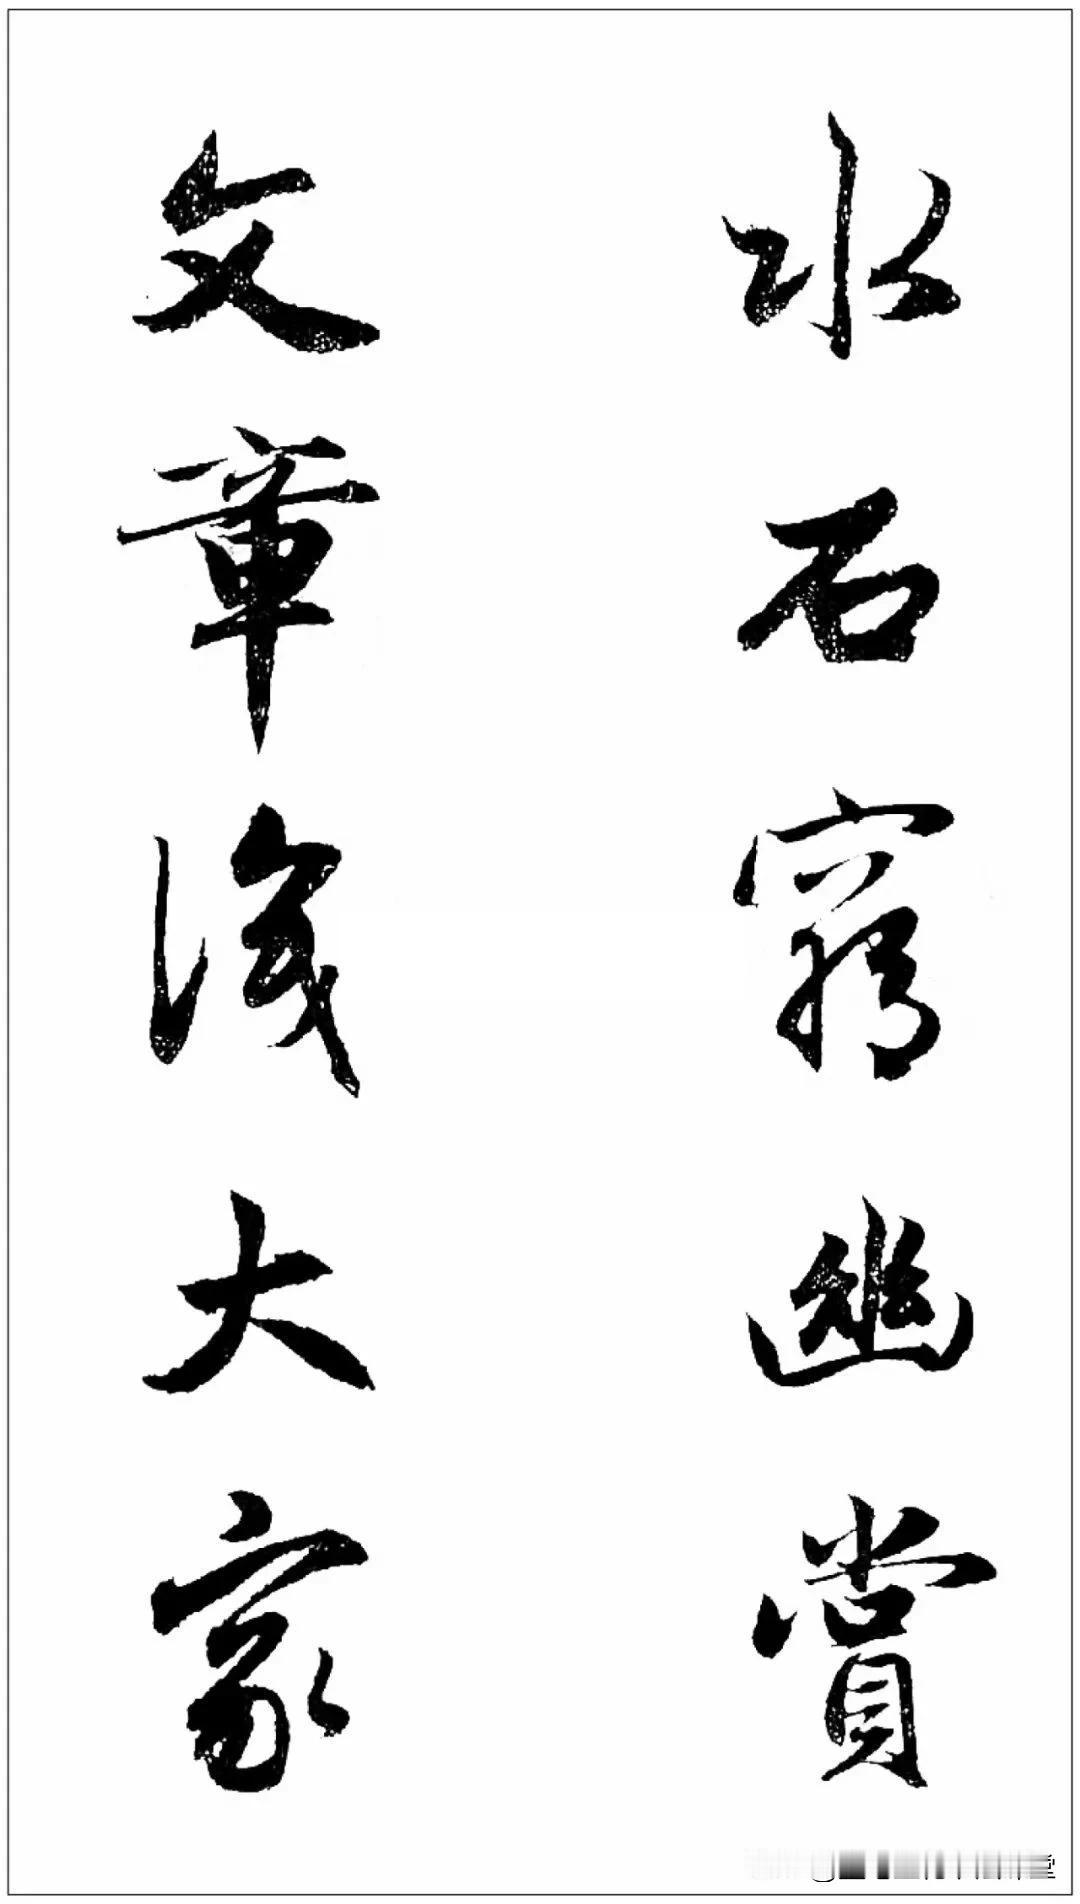 水石窮幽賞
文章識大家